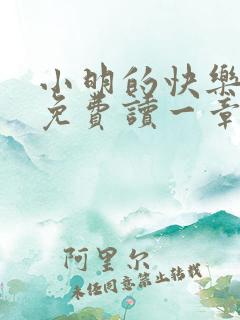 小明的快樂
免費讀一章
阿里尔
未经同意禁止转载